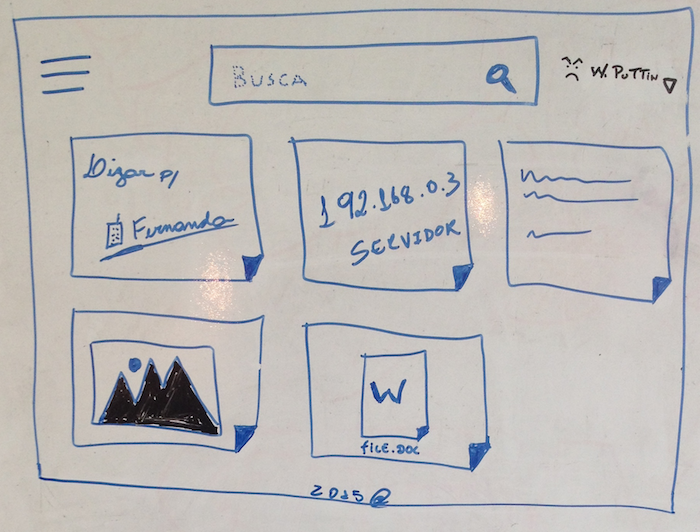 BUSCA
W. PUTTIN
Dizar p/
Fernanda
192.168.0.3
SERVIDOR
W
FILE.DOC
2015 @